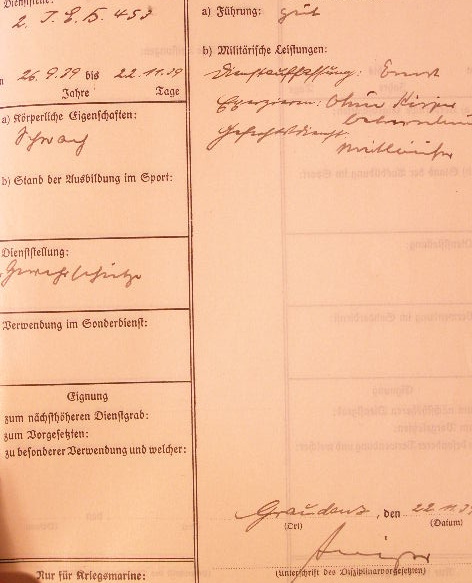 Dienststelle:
2. J.E.B. 453
26.9.39 bis 22.11.39
Jahre Tage
a) Körperliche Eigenschaften:
Schwach
b) Stand der Ausbildung im Sport:
Dienststellung:
Gewehrschütze
Verwendung im Sonderdienst:
Eignung
zum nächsthöheren Dienstgrad:
zum Vorgesetzten:
zu besonderer Verwendung und welcher:
Nur für Kriegsmarine:
a) Führung: gut
b) Militärische Leistungen:
Dienstauffassung: Ernst
Exerzieren: Ohne
Gefechtsdienst:
Graudenz, den 22.11.39
(Ort) (Datum)
(Unterschrift des Disziplinarvorgesetzten)